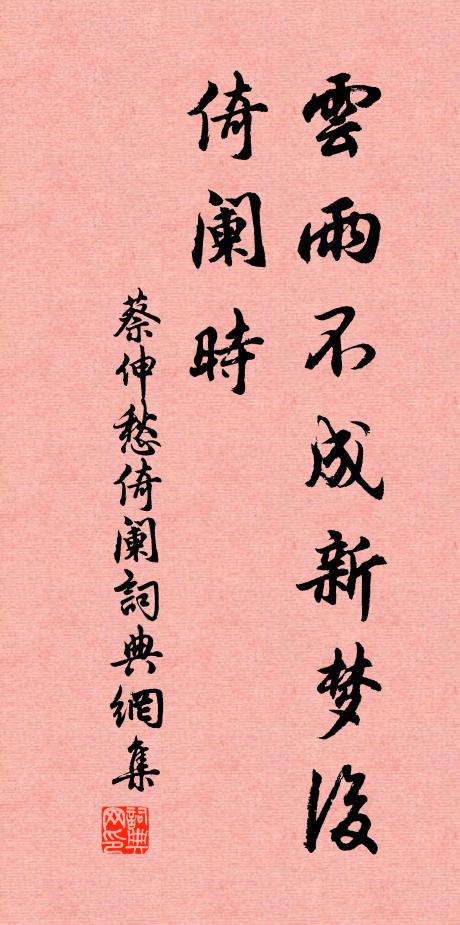 雲雨不成新梦後
倚阑時
蔡伸愁倚阑詞典網集
詞典网印